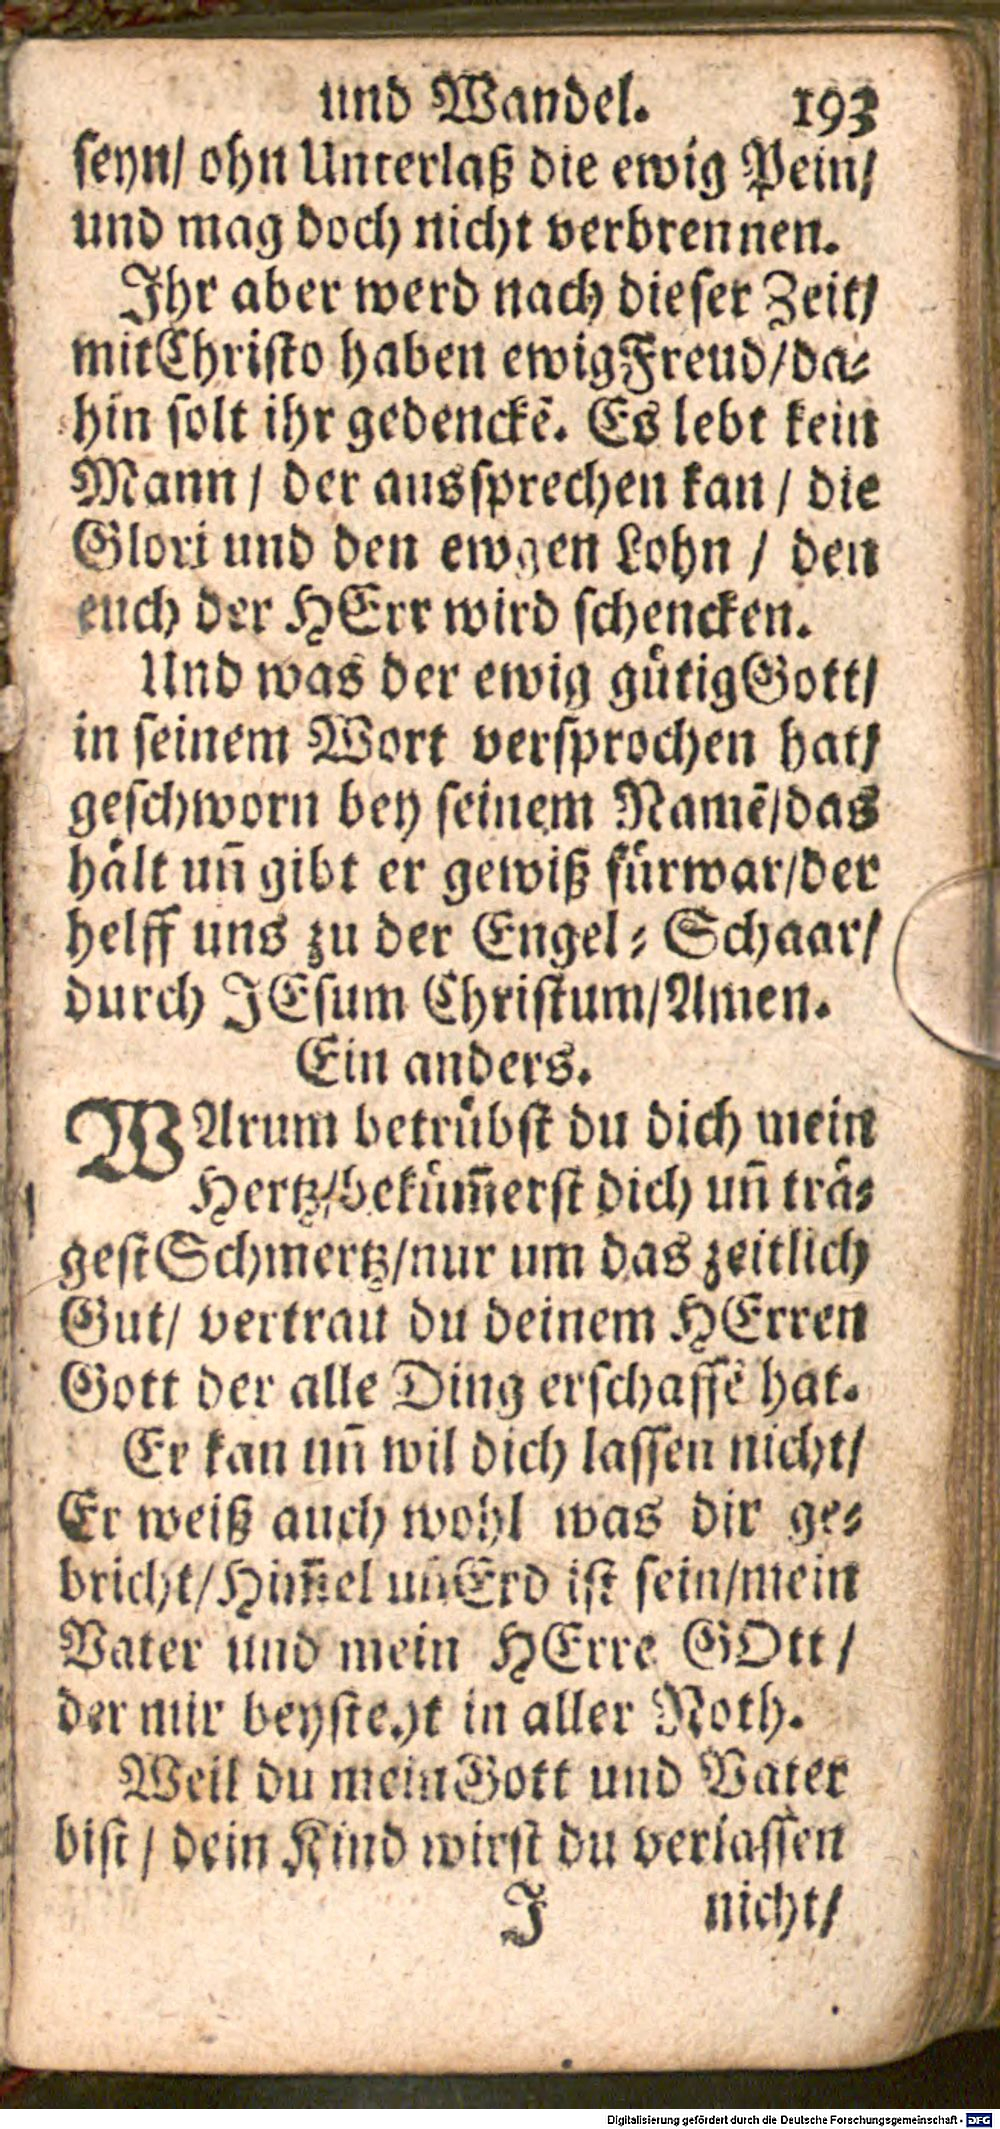 und Wandel. 193
seyn/ ohn Unterlaß die ewig Pein/
und mag doch nicht verbrennen.
Ihr aber werd nach dieser Zeit/
mit Christo haben ewig Freud/da⸗
hin solt ihr gedenckẽ. Es lebt kein
Mann / der aussprechen kan / die
Glori und den ewgen Lohn / den
euch der HErr wird schencken.
Und was der ewig gütig Gott/
in seinem Wort versprochen hat/
geschworn bey seinem Namẽ/das
hält uñ gibt er gewiß fürwar/der
helff uns zu der Engel⸗Schaar/
durch JEsum Christum/Amen.
Ein anders.
WArum betrübst du dich mein
Hertz/bekům̃erst dich uñ trä⸗
gest Schmertz/nur um das zeitlich
Gut/ vertrau du deinem HErren
Gott der alle Ding erschaffẽ hat.
Er kan uñ wil dich lassen nicht/
Er weiß auch wohl was dir ge⸗
bricht/Him̃el uñ Erd ist sein/mein
Vater und mein HErre GOtt/
der mir beysteht in aller Noth.
Weil du mein Gott und Vater
bist / dein Kind wirst du verlassen
J nicht/
Digitalisierung gefördert durch die Deutsche Forschungsgemeinschaft - DFG